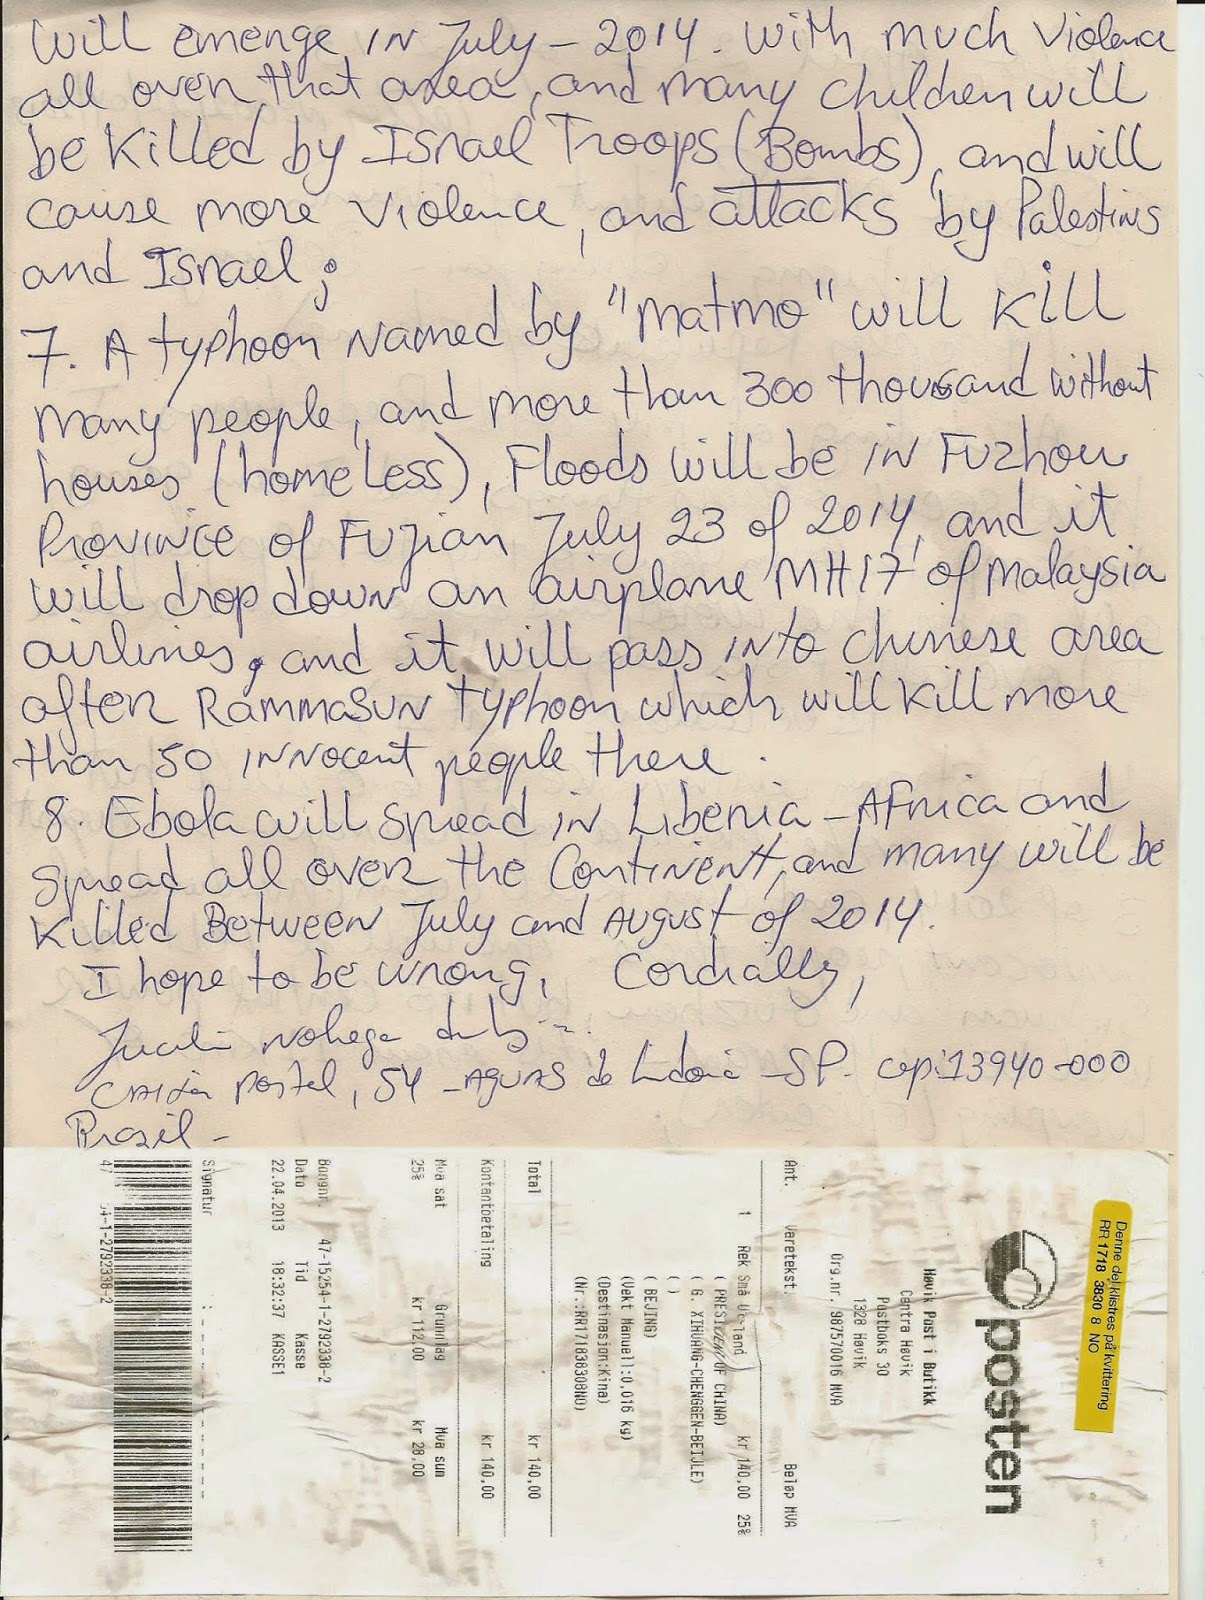 will emenge IN July - 2014. With much Violence
all over that area, and many children will
be killed by Israel Troops (Bombs), and will
cause more violence, and attacks by Palestins
and Israel;
7. A typhoon Named by "Matmo" will kill
many people, and more than 300 thousand without
houses (homeless), Floods will be in Fuzhou
Province of Fujian July 23 of 2014, and it
will drop down an airplane MH17 of Malaysia
airlines, and it will pass into chinese area
after Rammasun typhoon which will kill more
than 50 innocent people there.
8. Ebola will spread in Liberia - Africa and
spread all over the Continent, and many will be
killed Between July and August of 2014.
I hope to be wrong, Cordially,
Caixa Postal, 54 - Aguas de Lindoia - SP. cep: 13940-000
Brazil -
Denne del klistres på kvittering
RR 1718 3830 8 NO
posten
Høvik Post i Butikk
Centra Høvik
Postboks 30
1328 Høvik
Org.nr. 987570016 MVA
Ant. Varetekst. Beløp MVA
1 Rek Små Utland kr 140,00 25%
( PRESIDENT OF CHINA)
( G. XIHUANG-CHENGGEN-BEIJLE)
( )
( BEJING)
(Vekt Manuell:0.016 kg)
(Destinasjon:Kina)
(Nr.:RR171838308NO)
Total kr 140,00
Kontantbetaling kr 140,00
Mva sat Grunnlag Mva sum
25% kr 112,00 kr 28,00
Bongnr. 47-15254-1-2792338-2
Dato Tid Kasse
22.04.2013 18:32:37 KASSE1
Signatur
47 54-1-2792338-2